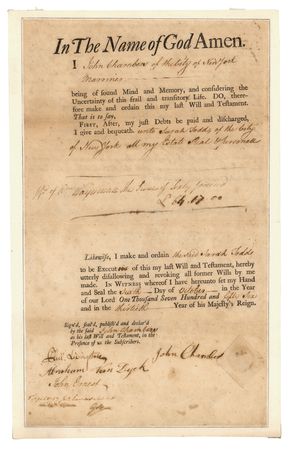 In The Name of God Amen.
I John Chambers of the City of New York
Marriner
being of sound Mind and Memory, and considering the
Uncertainty of this frail and transitory Life. DO, there-
fore make and ordain this my last Will and Testament.
That is to say,
FIRST, After, my just Debts be paid and discharged,
I give and bequeath unto Sarah Dodds of the City
of New York all my Estate Real & Personal
Likewise, I make and ordain the said Sarah Dodds
to be Execut of this my last Will and Testament, hereby
utterly disallowing and revoking all former Wills by me
made. IN WITNESS whereof I have hereunto set my Hand
and Seal the Sixth Day of October in the Year
of our Lord One Thousand Seven Hundred and Fifty Six
and in the thirtieth Year of his Majesty's Reign.
Sign'd, seal'd, publish'd and declar'd
by the said John Chambers
as his last Will and Testament, in the
Presence of us the Subscribers.
John Chambers
Abraham Van Dyck
John Ernest